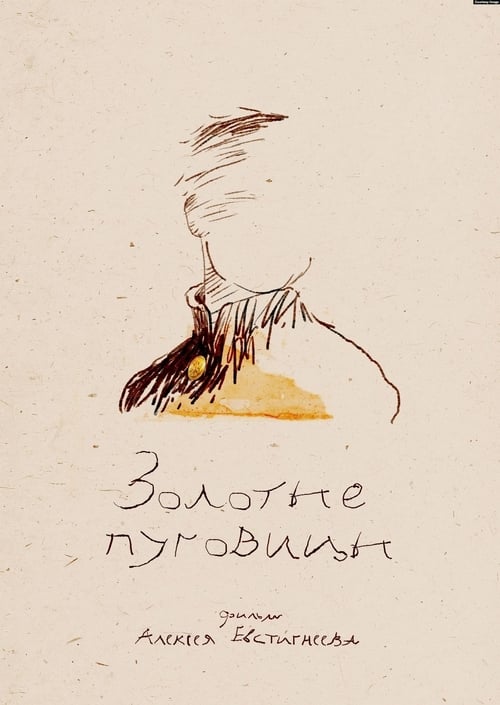 Courtesy Image
Золотые
пуговицы
фильм
Алексея Евстигнеева